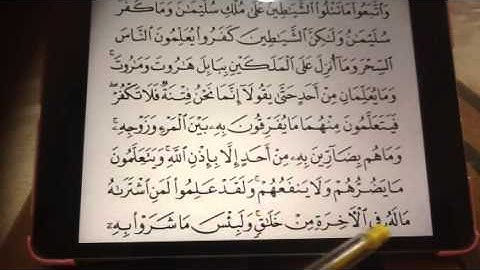 وَاتَّبَعُوا مَا تَتْلُوا الشَّيَاطِينُ عَلَىٰ مُلْكِ سُلَيْمَٰنَ وَمَا كَفَرَ
سُلَيْمَٰنُ وَلَٰكِنَّ الشَّيَاطِينَ كَفَرُوا يُعَلِّمُونَ النَّاسَ
السِّحْرَ وَمَا أُنزِلَ عَلَى الْمَلَكَيْنِ بِبَابِلَ هَٰرُوتَ وَمَٰرُوتَ ۚ
وَمَا يُعَلِّمَانِ مِنْ أَحَدٍ حَتَّىٰ يَقُولَا إِنَّمَا نَحْنُ فِتْنَةٌ فَلَا تَكْفُرْ ۖ
فَيَتَعَلَّمُونَ مِنْهُمَا مَا يُفَرِّقُونَ بِهِۦ بَيْنَ الْمَرْءِ وَزَوْجِهِۦ ۚ
وَمَا هُم بِضَارِّينَ بِهِۦ مِنْ أَحَدٍ إِلَّا بِإِذْنِ اللَّهِ ۚ وَيَتَعَلَّمُونَ
مَا يَضُرُّهُمْ وَلَا يَنفَعُهُمْ ۚ وَلَقَدْ عَلِمُوا لَمَنِ اشْتَرَىٰهُ
مَا لَهُۥ فِي الْآخِرَةِ مِنْ خَلَٰقٍ ۚ وَلَبِئْسَ مَا شَرَوْا بِهِۦ